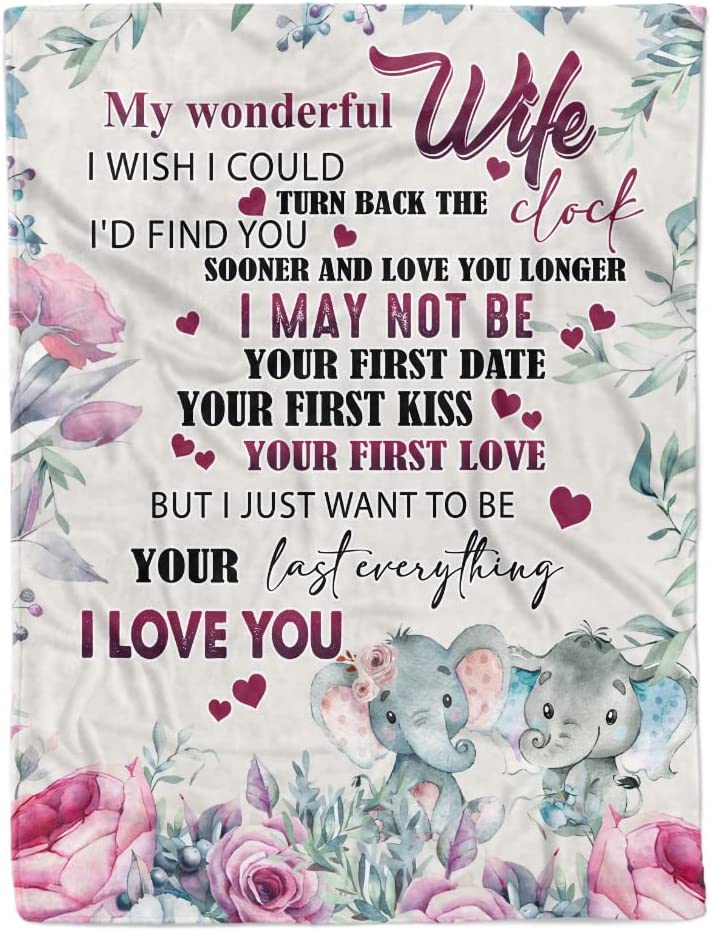 My wonderful Wife
I WISH I COULD
TURN BACK THE clock
I'D FIND YOU
SOONER AND LOVE YOU LONGER
I MAY NOT BE
YOUR FIRST DATE
YOUR FIRST KISS
YOUR FIRST LOVE
BUT I JUST WANT TO BE
YOUR last everything
I LOVE YOU